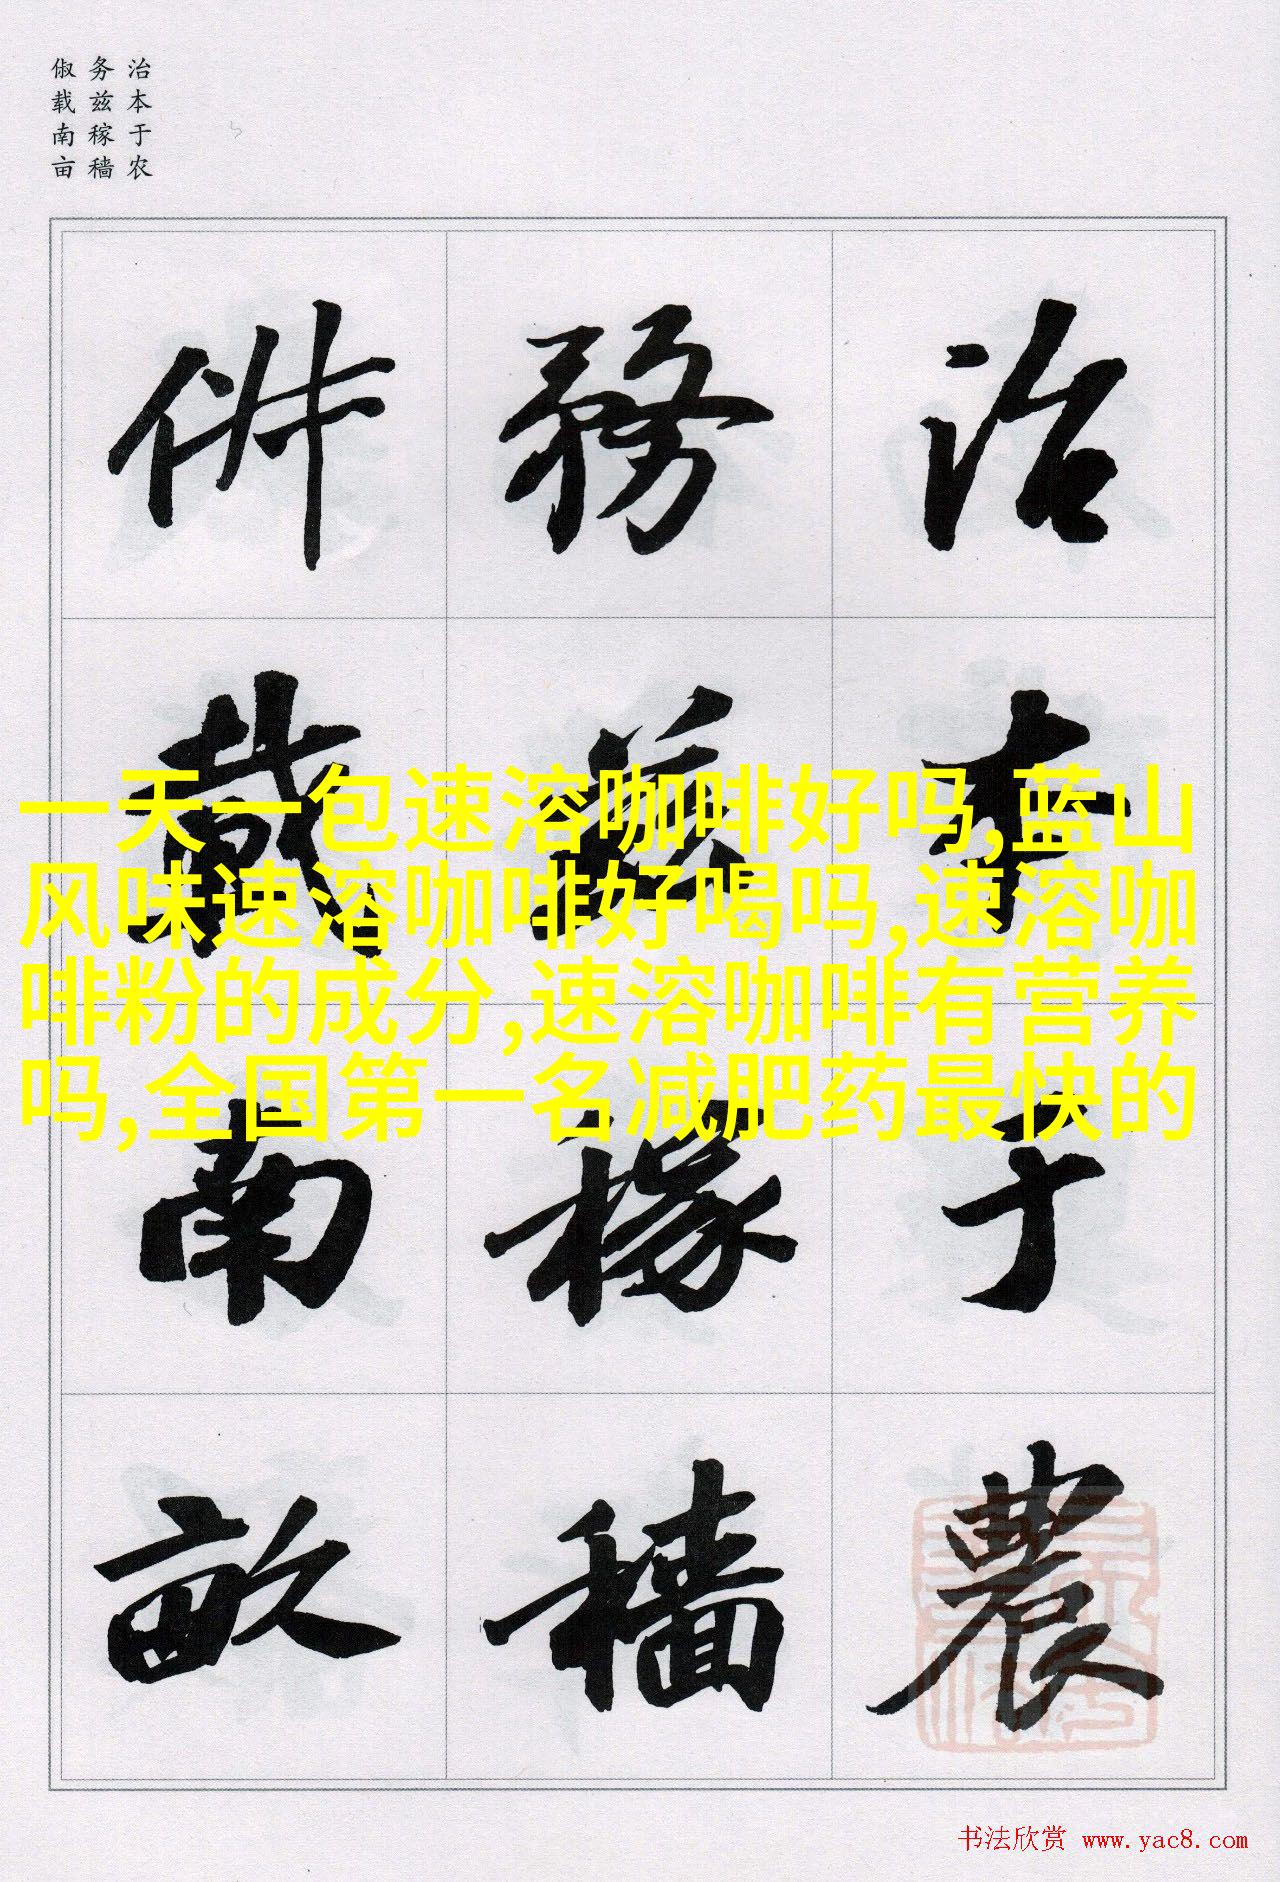 治本于农
务兹稼穑
俶载南亩
治本于農
務茲稼穡
俶載南畝
一天一包速溶咖啡好吗,蓝山
风味速溶咖啡好喝吗,速溶咖
啡粉的成分,速溶咖啡有营养
吗,全国第一名减肥药最快的
书法欣赏 www.yac8.com